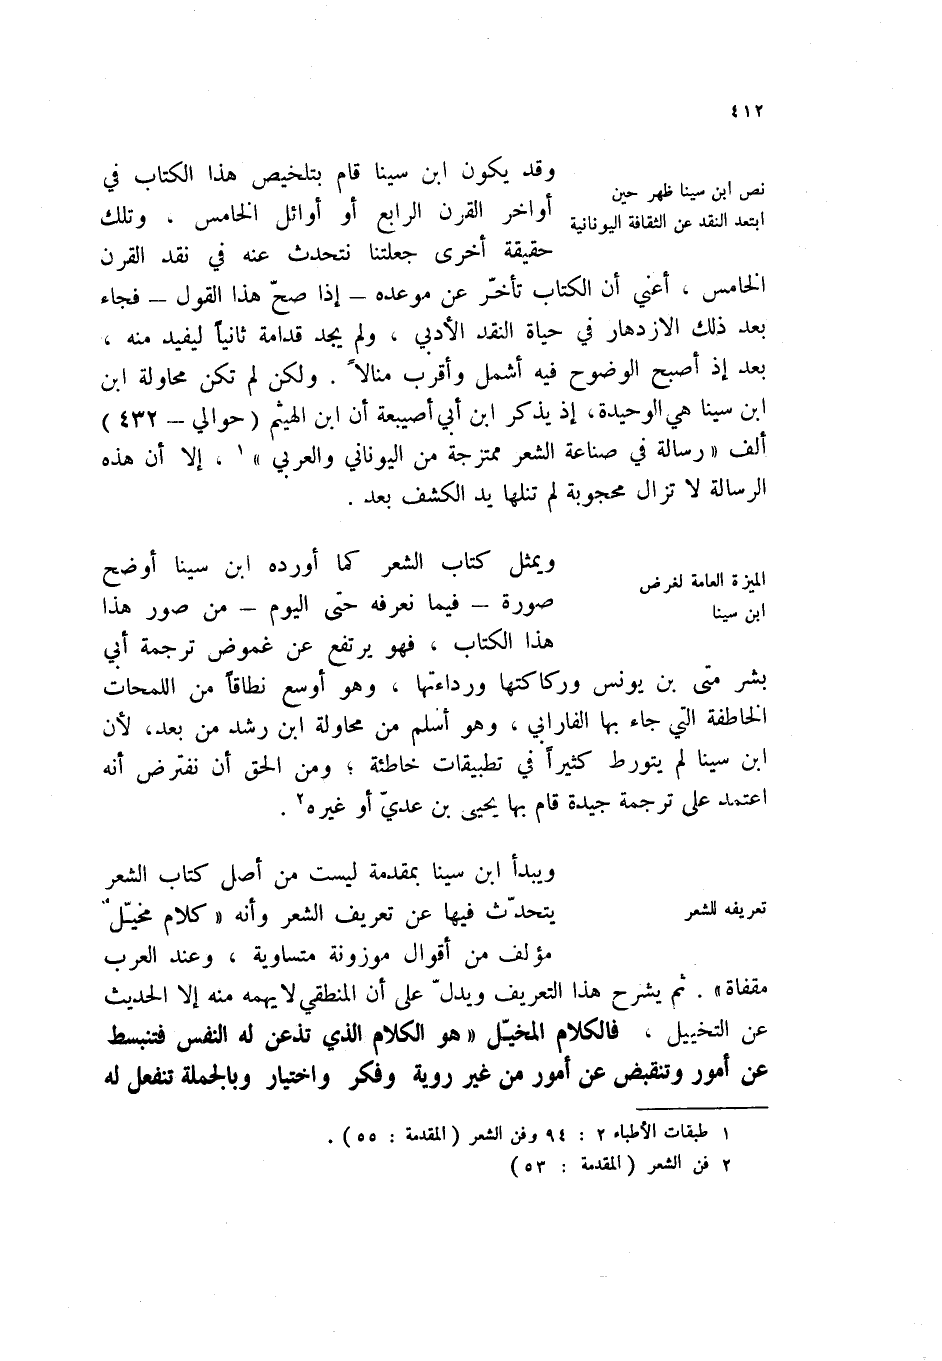 ٤١٢
نص ابن سينا ظهر حين
ابتعد النقد عن الثقافة اليونانية
وقد يكون ابن سينا قام بتلخيص هذا الكتاب في
أواخر القرن الرابع أو أوائل الخامس ، وتلك
حقيقة أخرى جعلتنا نتحدث عنه في نقد القرن
الخامس ، أعني أن الكتاب تأخّر عن موعده – إذا صحّ هذا القول – فجاء
بعد ذلك الازدهار في حياة النقد الأدبي ، ولم يجد قدامة ثانياً ليفيد منه ،
بعد إذ أصبح الوضوح فيه أشمل وأقرب منالاً . ولكن لم تكن محاولة ابن
ابن سينا هي الوحيدة، إذ يذكر ابن أبي أصيبعة أن ابن الهيثم (حوالي – ٤٣٢)
ألف « رسالة في صناعة الشعر ممتزجة من اليوناني والعربي » ١ ، إلا أن هذه
الرسالة لا تزال محجوبة لم تنلها يد الكشف بعد .
الميزة العامة لغرض
ابن سينا
ويمثل كتاب الشعر كما أورده ابن سينا أوضح
صورة – فيما نعرفه حتى اليوم – من صور هذا
هذا الكتاب ، فهو يرتفع عن غموض ترجمة أبي
بشر متّى بن يونس وركاكتها ورداءتها ، وهو أوسع نطاقاً من اللمحات
الخاطفة التي جاء بها الفارابي ، وهو أسلم من محاولة ابن رشد من بعد، لأن
ابن سينا لم يتورط كثيراً في تطبيقات خاطئة ؛ ومن الحق أن نفترض أنه
اعتمد على ترجمة جيدة قام بها يحيى بن عديّ أو غيره ٢ .
تعريفه للشعر
ويبدأ ابن سينا بمقدمة ليست من أصل كتاب الشعر
يتحدّث فيها عن تعريف الشعر وأنه « كلام مخيّلٌ
مؤلف من أقوال موزونة متساوية ، وعند العرب
مقفاة» . ثم يشرح هذا التعريف ويدلّ على أن المنطقي لا يهمه منه إلا الحديث
عن التخييل ، فالكلام المخيّل « هو الكلام الذي تذعن له النفس فتنبسط
عن أمور وتنقبض عن أمور من غير روية وفكر واختيار وبالجملة تنفعل له
١ طبقات الأطباء ٢ : ٩٤ وفن الشعر (المقدمة : ٥٥) .
٢ فن الشعر (المقدمة : ٥٣)